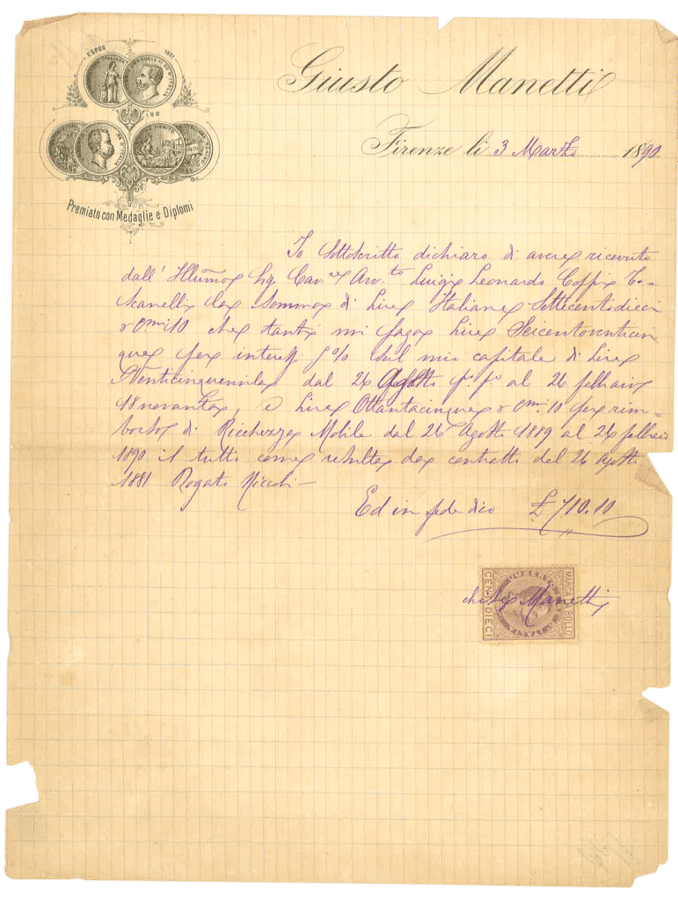 ESPOS 1861
Giusto Manetti
Firenze li 3 Marzo 1890
Premiato con Medaglie e Diplomi
Io Sottoscritto dichiaro di avere ricevuto
dall' Illmo Sig. Cavre Avv.to Luigi Leonardo Coppi To-
scanelli la Somma di Lire Italiane Settecentodieci
e cmi 10 che tanti mi paga Lire Seicentoventicin
que per interessi 5% sul mio capitale di Lire
Venticinquemila dal 26 Agosto pº pº al 26 febbraio
18novanta, e Lire Ottantacinque e cmi 10 per rim=
borso di Ricchezza Mobile dal 26 Agosto 1889 al 26 febbraio
1890 il tutto come resulta da contratto del 26 agosto
1881 Rogato Niccoli
Ed in fede dico £ 710.10
Manetti
MARCA DA BOLLO
UMBERTO
CEN. DIECI